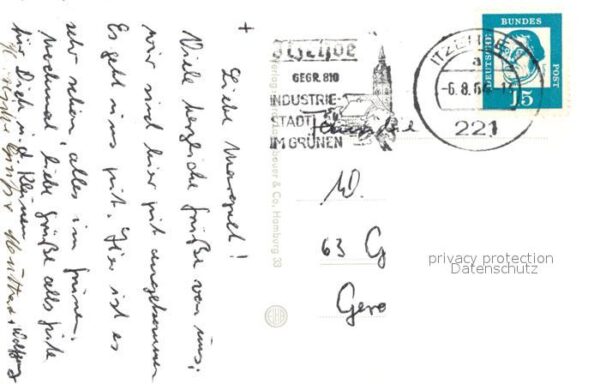 +
Liebe Margret!
Viele herzliche Grüße von uns,
wir sind hier gut angekommen
Es geht uns gut. Hier ist es
sehr schön, alles im grünen.
Nochmal liebe Grüße alles gute
für Dich u. d. Kleinen
Itzehoe
GEGR. 810
INDUSTRIE-
STADT
IM GRÜNEN
ITZEHOE
a
-6.8.6
221
DEUTSCHE
BUNDES
POST
15
& Co., Hamburg 33
Familie
W.
63 G
Gero
privacy protection
Datenschutz